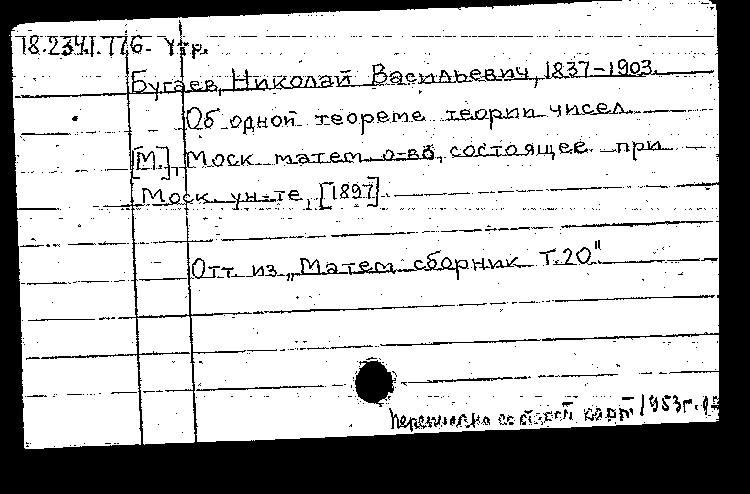 18.234.1.776. Утр.
Бугаев, Николай Васильевич, 1837-1903.
Об одной теореме теории чисел.
[М.], Моск. матем. о-во, состоящее при
Моск. ун-те, [1897].
Отт. из „Матем. сборник Т.20"
Переписано со старой карт 1953г.